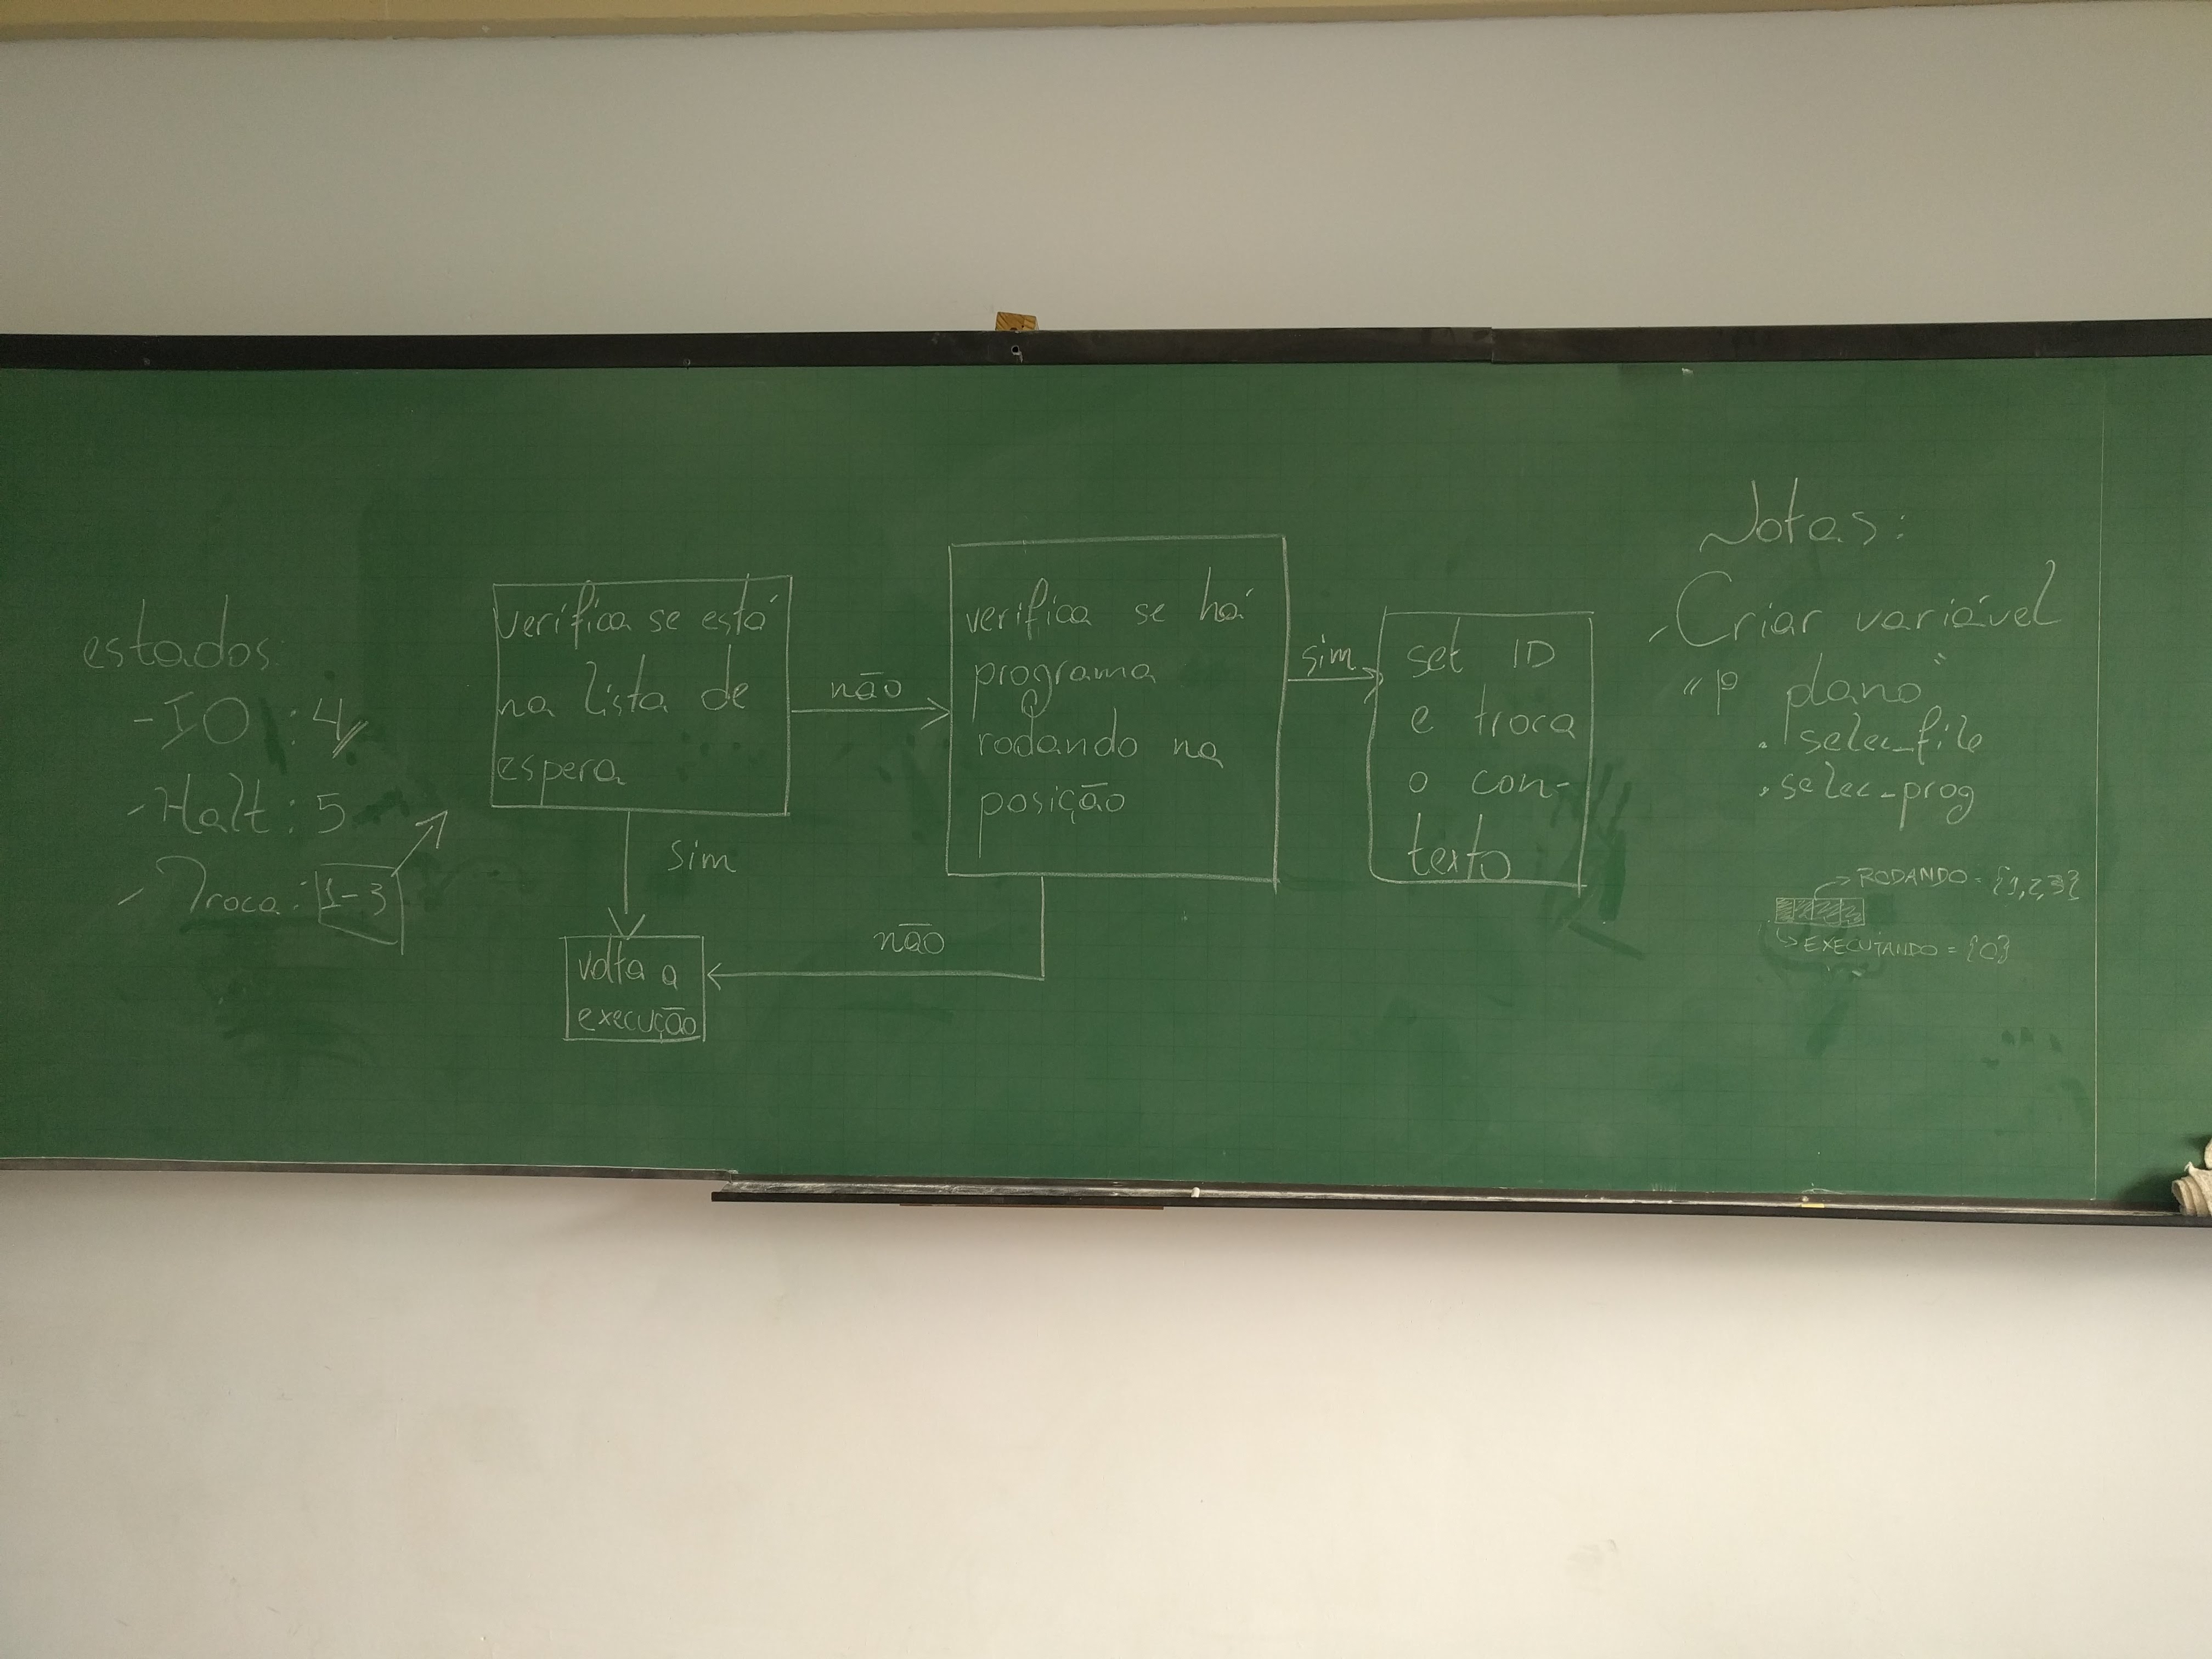 estados:
- IO : 4
- Halt : 5
- Troca : 1-3
verifica se está
na lista de
espera
não
sim
volta a
execução
verifica se há
programa
rodando na
posição
não
sim
set ID
e troca
o con-
texto
Notas:
- Criar variável
"1º plano"
. selec_file
. selec_prog
RODANDO = {1,2,3}
EXECUTANDO = {0}